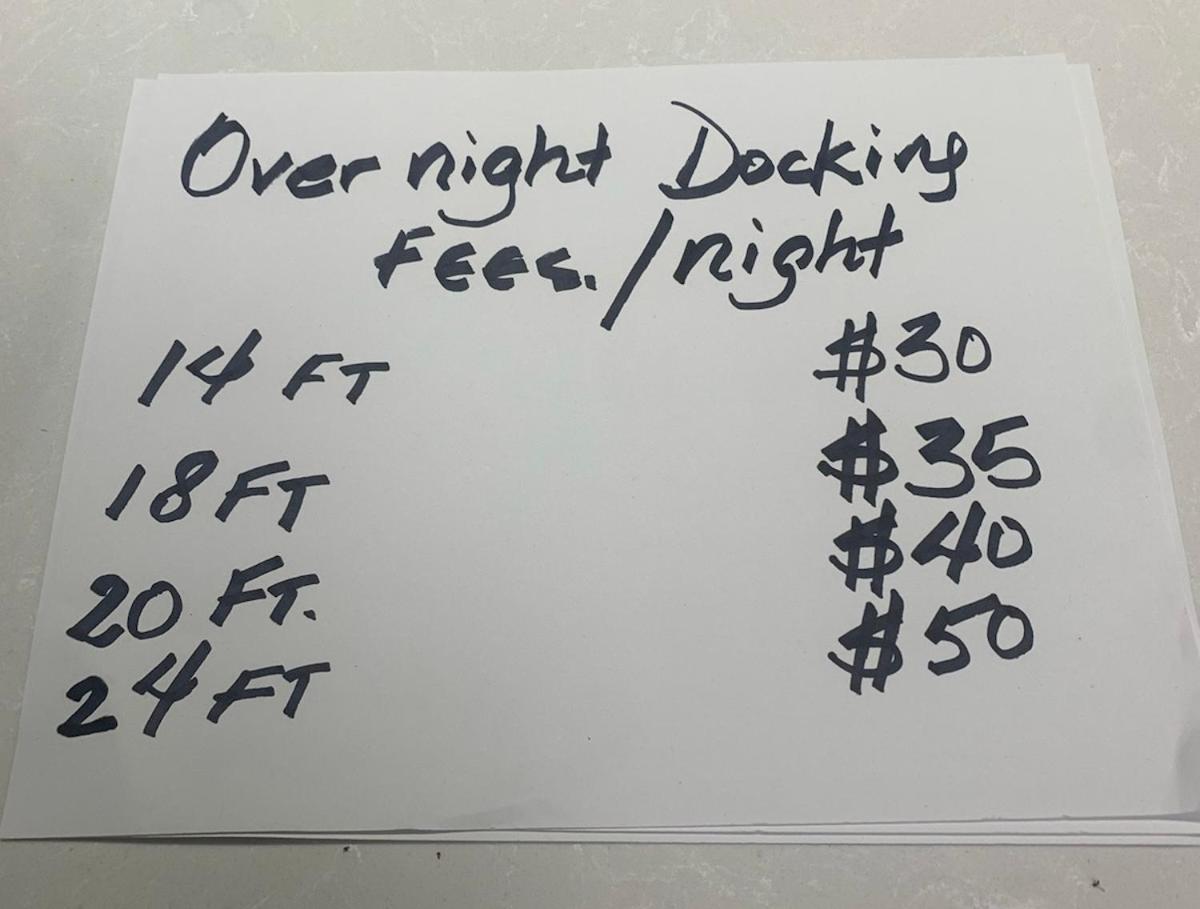 Over night Docking
FEES. / night
14 FT $30
18 FT $35
20 FT. $40
24 FT $50